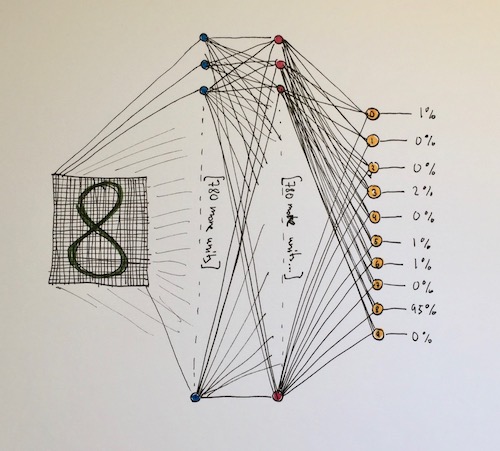 8
[780 more units]
[780 more units...]
0 1%
1 0%
2 0%
3 2%
4 0%
5 1%
6 1%
7 0%
8 95%
9 0%